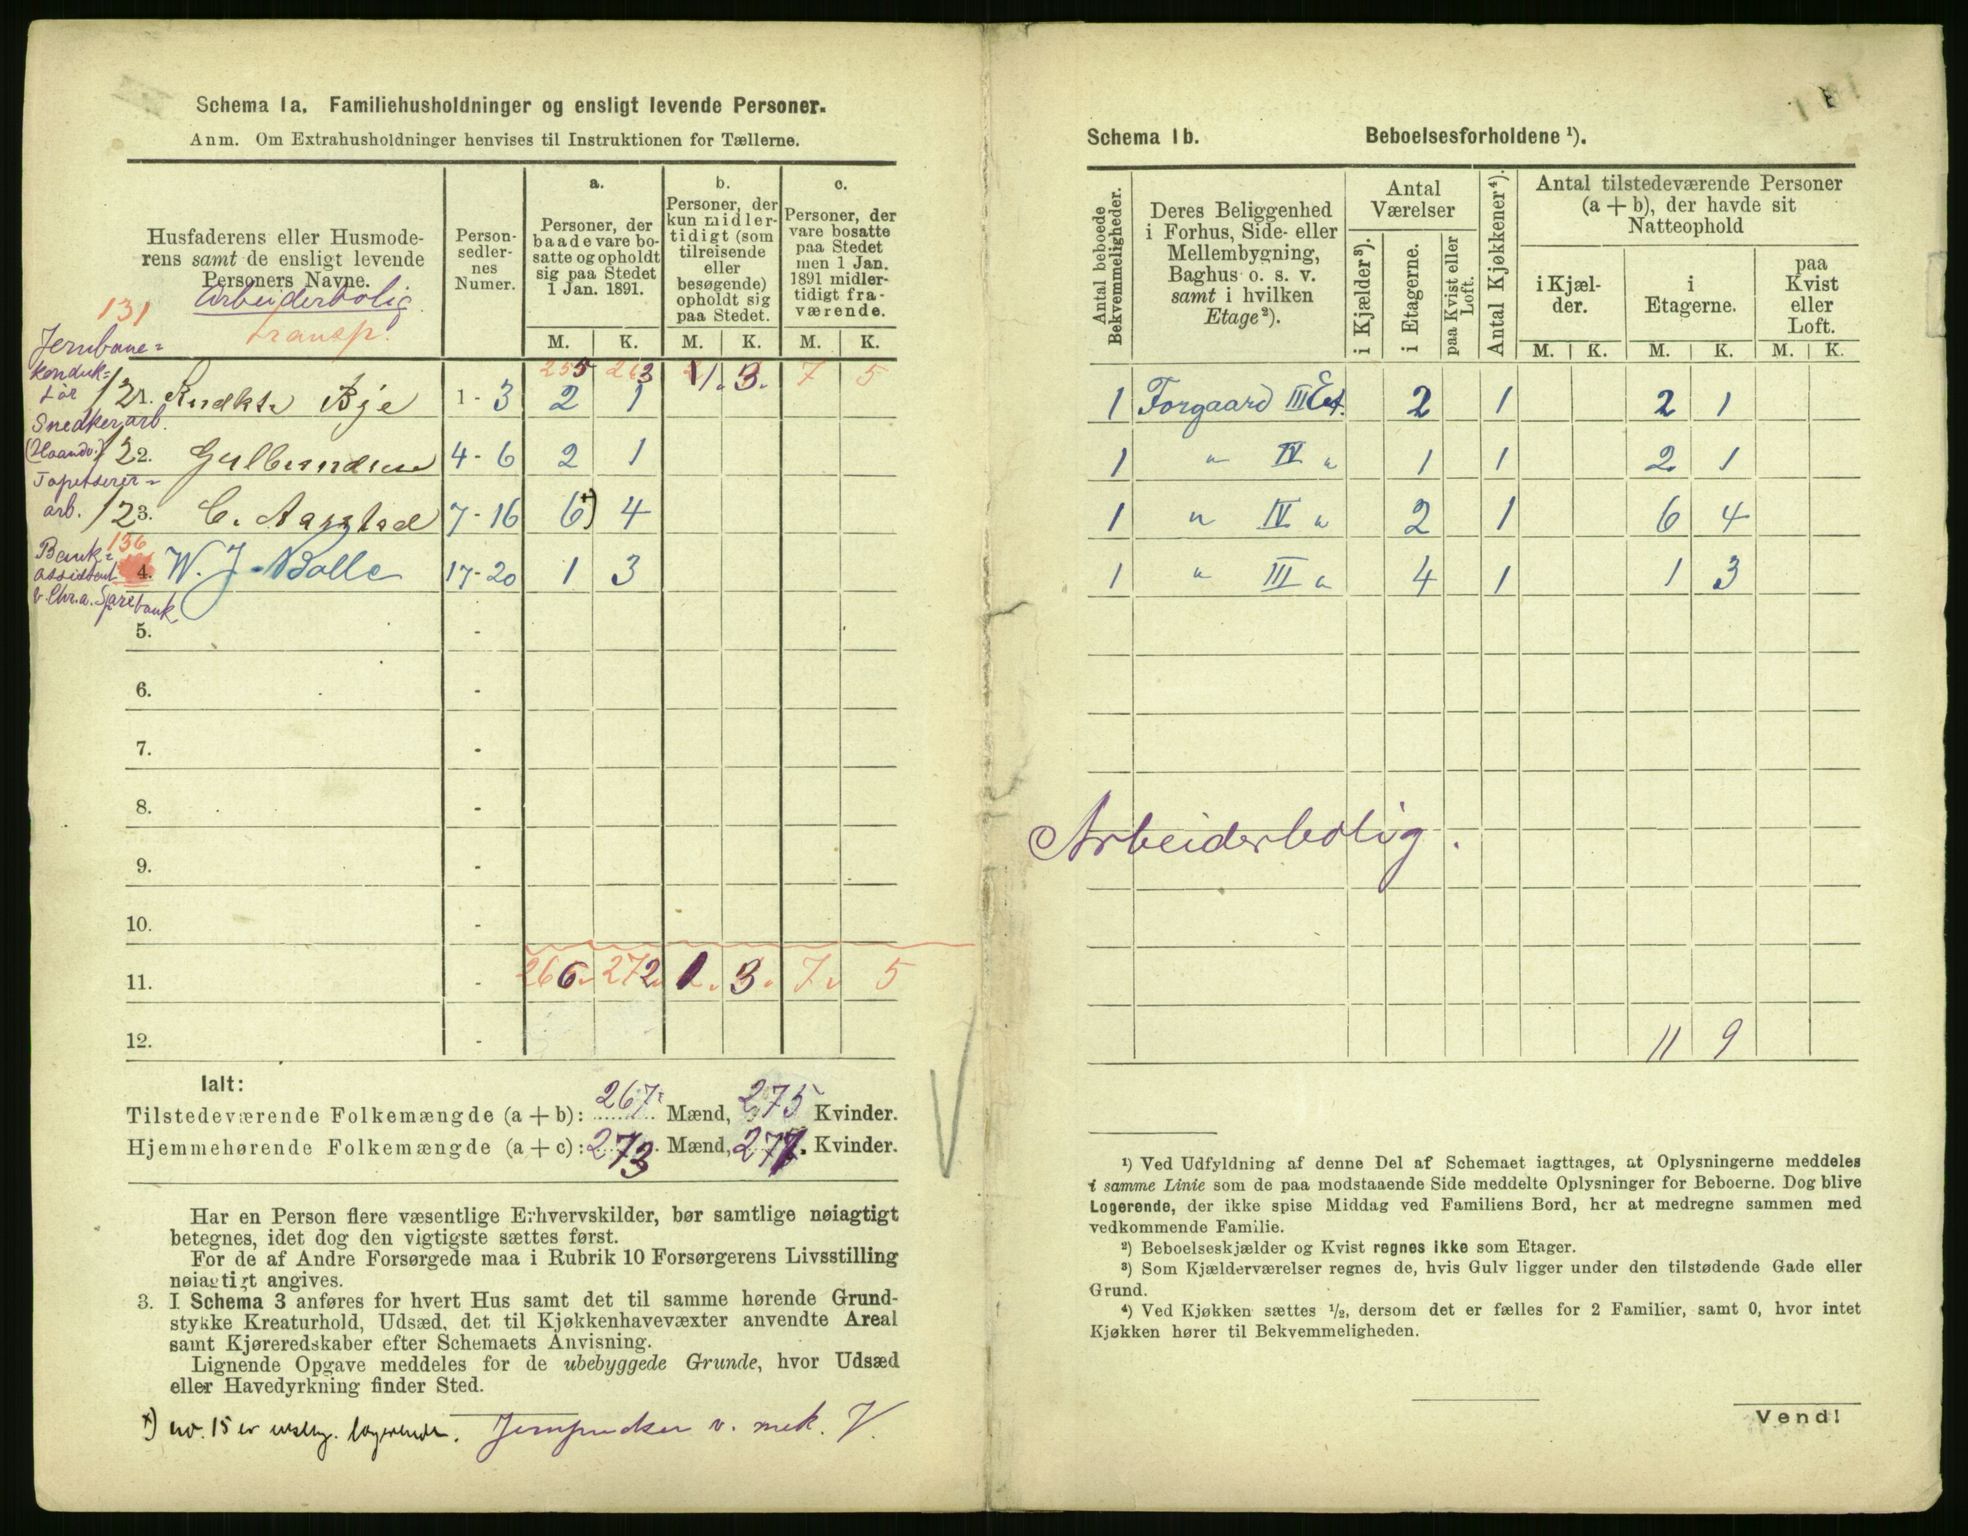 Schema 1a. Familiehusholdninger og ensligt levende Personer.
Anm. Om Extrahusholdninger henvises til Instruktionen for Tællerne.
Husfaderens eller Husmoderens samt de ensligt levende Personers Navne.
Personsedlernes Numer.
a. Personer, der baade vare bosatte og opholdt sig paa Stedet 1 Jan. 1891.
b. Personer, der kun midlertidigt (som tilreisende eller besøgende) opholdt sig paa Stedet.
c. Personer, der vare bosatte paa Stedet men 1 Jan. 1891 midlertidigt fraværende.
M. K. M. K. M. K.
Arbeiderbolig
131 transp.
255 263 1. 3. 7 5
Jernbane=konduktør 121. Bye 1-3 2 1
Snedkerarb. (Haandv.) 122. Gulbrandsen 4-6 2 1
Tapetserer=arb. 123. C. Aagstad 7-16 6*) 4
Bank=assistent v. Chr.a. Sparebank 136 4. W. J. Bolle 17-20 1 3
5. -
6. -
7. -
8. -
9. -
10. -
11. - 266. 272. 1. 3. 7. 5
12. -
Ialt:
Tilstedeværende Folkemængde (a + b): 267 Mænd, 275 Kvinder.
Hjemmehørende Folkemængde (a + c): 273 Mænd, 277. Kvinder.
Har en Person flere væsentlige Erhvervskilder, bør samtlige nøiagtigt
betegnes, idet dog den vigtigste sættes først.
For de af Andre Forsørgede maa i Rubrik 10 Forsørgerens Livsstilling
nøiagtigt angives.
3. I Schema 3 anføres for hvert Hus samt det til samme hørende Grund-
stykke Kreaturhold, Udsæd, det til Kjøkkenhavevæxter anvendte Areal
samt Kjøreredskaber efter Schemaets Anvisning.
Lignende Opgave meddeles for de ubebyggede Grunde, hvor Udsæd
eller Havedyrkning finder Sted.
*) no. 15 er enslig. logerende. v. mek. V.
Schema 1b. Beboelsesforholdene ¹).
Antal beboede Bekvemmeligheder.
Deres Beliggenhed i Forhus, Side- eller Mellembygning, Baghus o. s. v. samt i hvilken Etage²).
Antal Værelser
i Kjælder³).
i Etagerne.
paa Kvist eller Loft.
Antal Kjøkkener⁴).
Antal tilstedeværende Personer (a + b), der havde sit Natteophold
i Kjælder.
i Etagerne.
paa Kvist eller Loft.
M. K. M. K. M. K.
1 Forgaard III Et. 2 1 2 1
1 " IV " 1 1 2 1
1 " IV " 2 1 6 4
1 " III " 4 1 1 3
Arbeiderbolig.
11 9
¹) Ved Udfyldning af denne Del af Schemaet iagttages, at Oplysningerne meddeles
i samme Linie som de paa modstaaende Side meddelte Oplysninger for Beboerne. Dog blive
Logerende, der ikke spise Middag ved Familiens Bord, her at medregne sammen med
vedkommende Familie.
²) Beboelseskjælder og Kvist regnes ikke som Etager.
³) Som Kjælderværelser regnes de, hvis Gulv ligger under den tilstødende Gade eller
Grund.
⁴) Ved Kjøkken sættes ½, dersom det er fælles for 2 Familier, samt 0, hvor intet
Kjøkken hører til Bekvemmeligheden.
Vend!